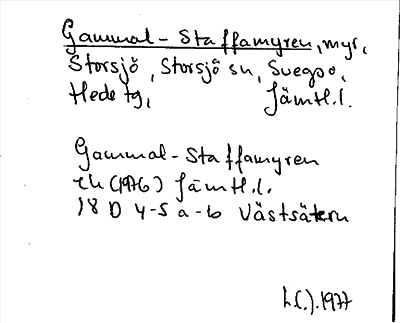 Gammal-Staffamyren, myr,
Storsjö, Storsjö sn, Svegs o.
Hede tg, Jämtl.l.
Gammal-Staffamyren
ek (1976) Jämtl.l.
18 D 4-5 a-b Västsätern
1977